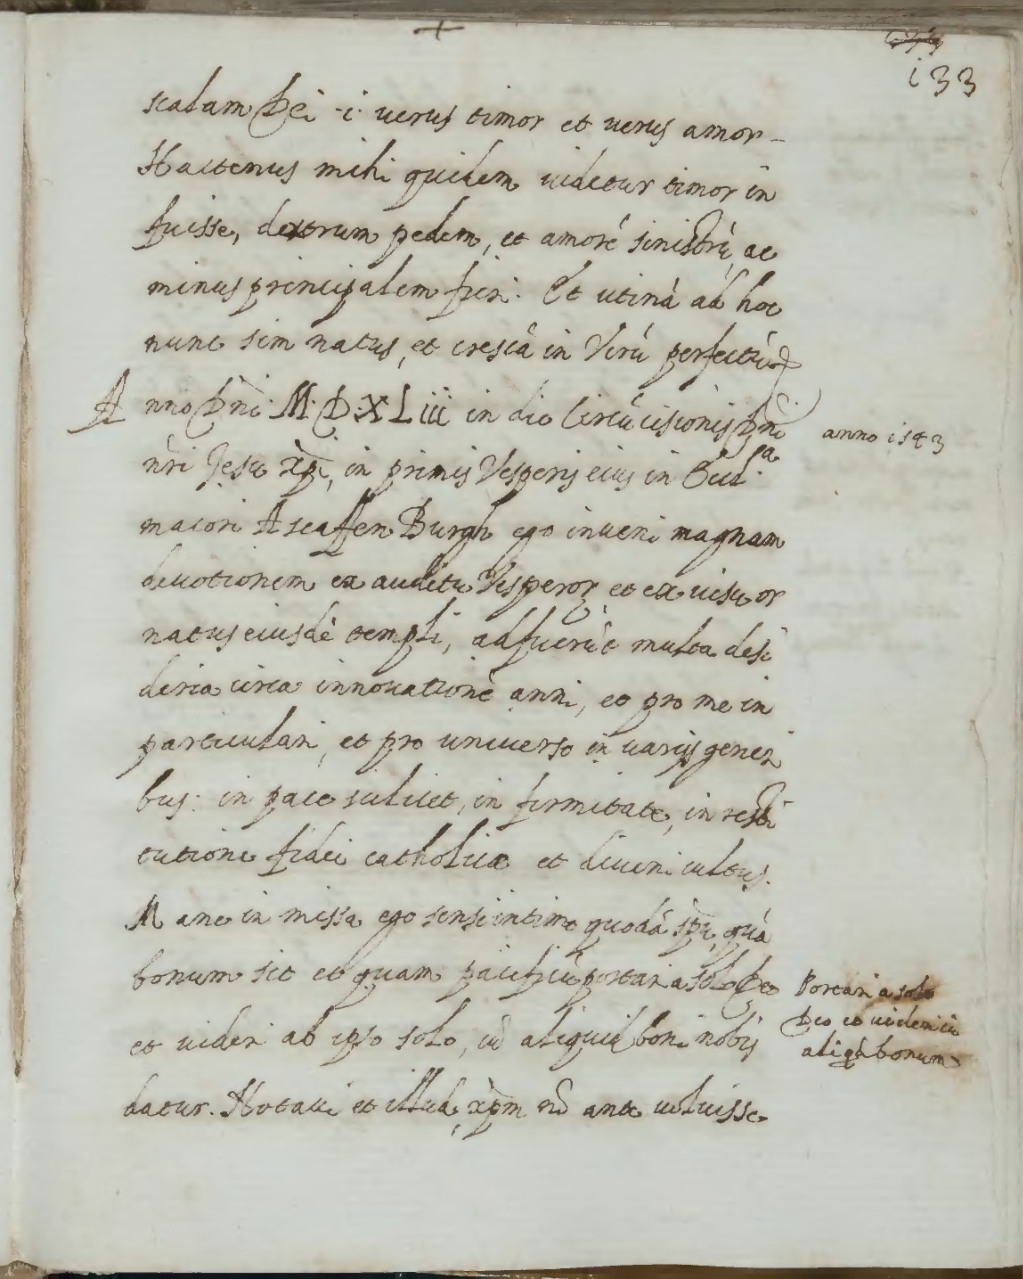 133
scalam Dei .i. uerus timor et uerus amor
Hactenus mihi quidem uidetur timor in
fuisse, dextrum pedem, et amorē sinistrū, ac
minus principalem fieri. Et utinā ad hoc
nunc sim natus, et crescā in Virū perfectū
Anno Dñi M.D.XLiii in die Circūcisionis Dñi
anno 1543
nr̄i Jesu xp̄i, in primis Vesperis eius in Eccl.ᵃ
maiori AscaffenBurgh ego inueni magnam
deuotionem ex auditu Vesperorꝝ et ex uisu or
natus eiusdē templi, adfuerūt multa desi
deria circa innouationē anni, et pro me in
particulari, et pro uniuerso in uarijs generi
bus: in pace scilicet, in firmitate, in resti
tutione fidei catholicæ et diuini cultus.
Mane in missa ego sensi intimo quodā sp̄u, quā
bonum sit et quam pacificū portari a solo Deo
et uideri ab ipso solo, cū aliquid boni nobis
Portari a solo
Deo et uideri cū
aliqd bonum
datur. Notaui et illud, xp̄m nō ante uoluisse